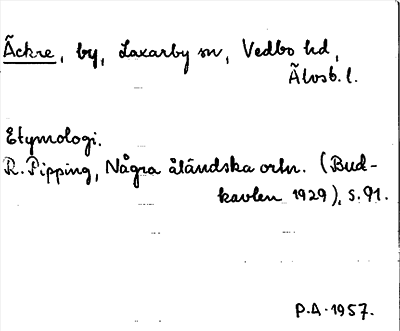 Äckre, by, Laxarby sn, Vedbo hd,
Älvsb. l.
Etymologi.
R. Pipping, Några åländska ortn. (Bud-
kavlen 1929), s. 91.
P.A. 1957.